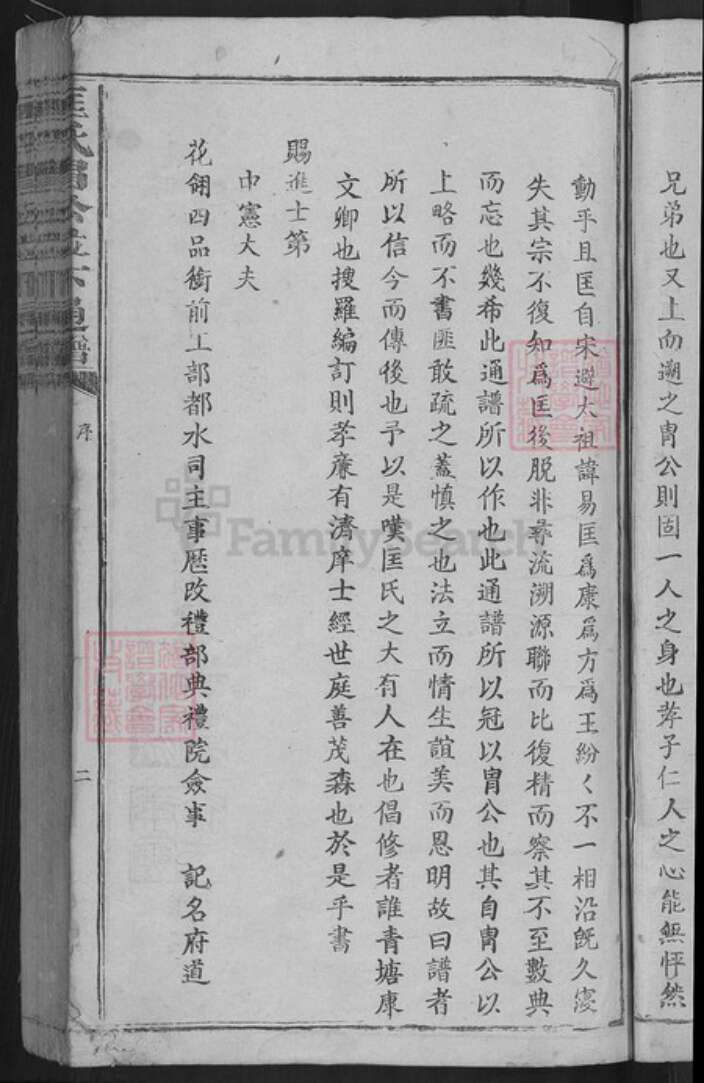 兄弟也又上而遡之胄公則固一人之身也孝子仁人之心能無怦然
動乎且匡自宋避太祖諱易匡爲康爲方爲王紛々不一相沿旣久寖
失其宗不復知爲匡後脫非尋流溯源聯而比復精而察其不至數典
而忘也幾希此通譜所以作也此通譜所以冠以胄公也其自胄公以
上略而不書匪敢疏之蓋慎之也法立而情生誼美而恩明故曰譜者
所以信今而傳後也予以是嘆匡氏之大有人在也倡修者誰青塘康
文卿也搜羅編訂則孝廉有濟庠士經世庭善茂森也於是乎書
賜進士第
中憲大夫
花翎四品銜前工部都水司主事歷改禮部典禮院僉事 記名府道
匡氏胄公位下通譜
序
二
FamilySearch